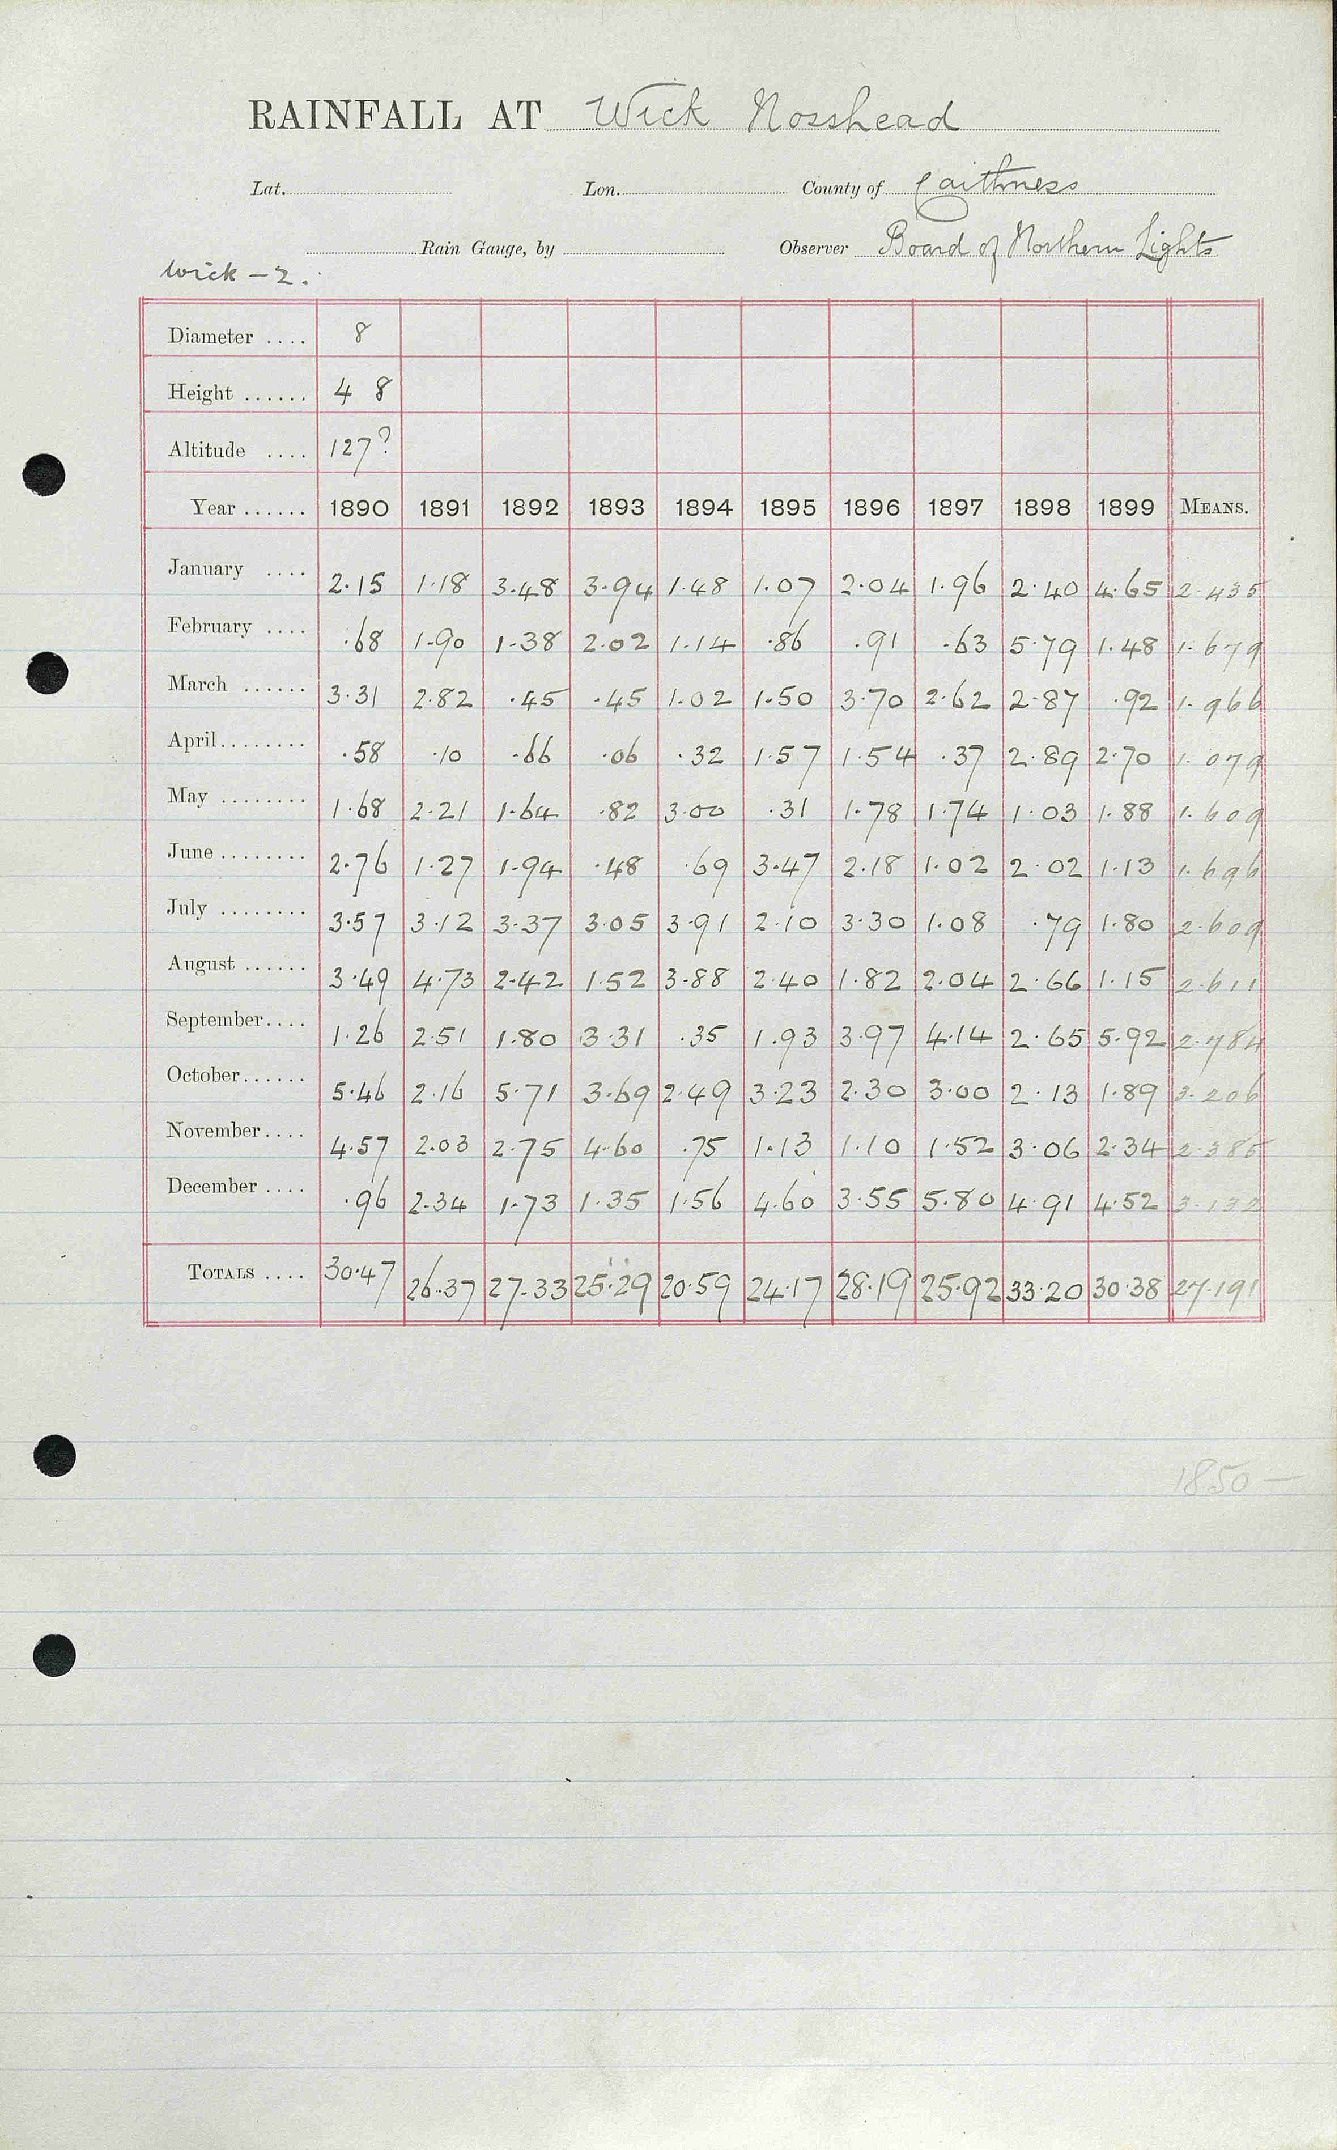 RAINFALL AT Wick Nosshead
Lat. Lon. County of Caithness
Rain Gauge, by Observer Board of Northern Lights
Wick - 2.
Diameter .... 8
Height ...... 4 8
Altitude .... 127?
Year ...... 1890 1891 1892 1893 1894 1895 1896 1897 1898 1899 MEANS.
January .... 2.15 1.18 3.48 3.94 1.48 1.07 2.04 1.96 2.40 4.65 2.435
February .... .68 1.90 1.38 2.02 1.14 .86 .91 .63 5.79 1.48 1.679
March ...... 3.31 2.82 .45 .45 1.02 1.50 3.70 2.62 2.87 .92 1.966
April........ .58 .10 .66 .06 .32 1.57 1.54 .37 2.89 2.70 1.079
May ........ 1.68 2.21 1.64 .82 3.00 .31 1.78 1.74 1.03 1.88 1.609
June ........ 2.76 1.27 1.94 .48 .69 3.47 2.18 1.02 2.02 1.13 1.696
July ........ 3.57 3.12 3.37 3.05 3.91 2.10 3.30 1.08 .79 1.80 2.609
August ...... 3.49 4.73 2.42 1.52 3.88 2.40 1.82 2.04 2.66 1.15 2.611
September.... 1.26 2.51 1.80 3.31 .35 1.93 3.97 4.14 2.65 5.92 2.784
October...... 5.46 2.16 5.71 3.69 2.49 3.23 2.30 3.00 2.13 1.89 3.206
November.... 4.57 2.03 2.75 4.60 .75 1.13 1.10 1.52 3.06 2.34 2.385
December .... .96 2.34 1.73 1.35 1.56 4.60 3.55 5.80 4.91 4.52 3.132
TOTALS .... 30.47 26.37 27.33 25.29 20.59 24.17 28.19 25.92 33.20 30.38 27.191
1850 —